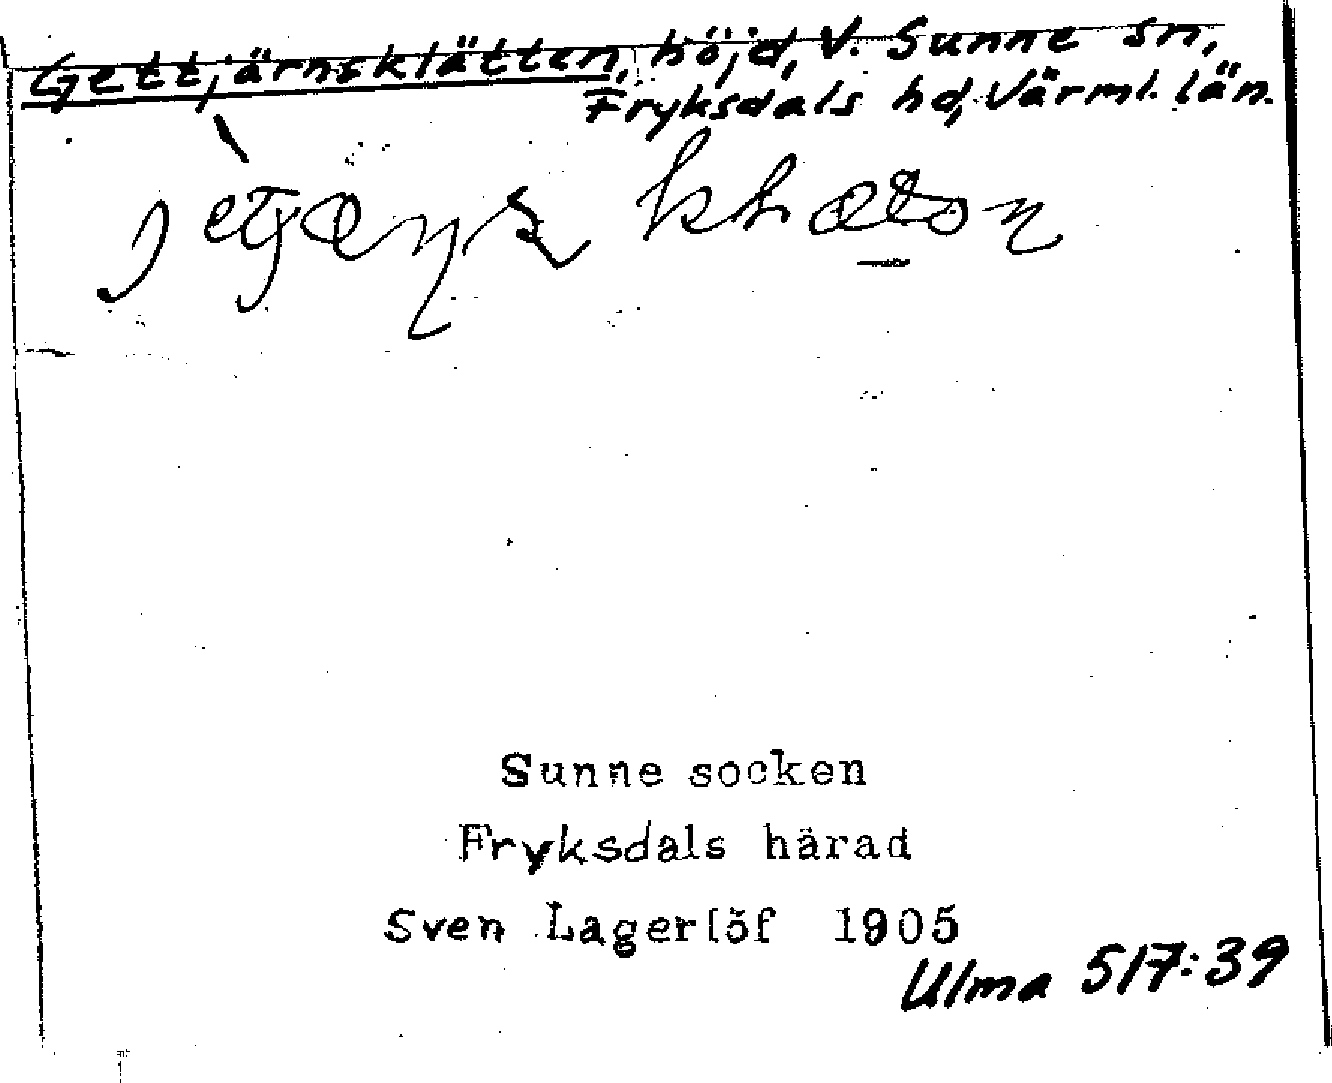 Gettjärnsklätten, höjd, V. Sunne sn,
Fryksdals hd, Värml. län.
Sunne socken
Fryksdals härad
Sven Lagerlöf 1905
Ulma 517:39